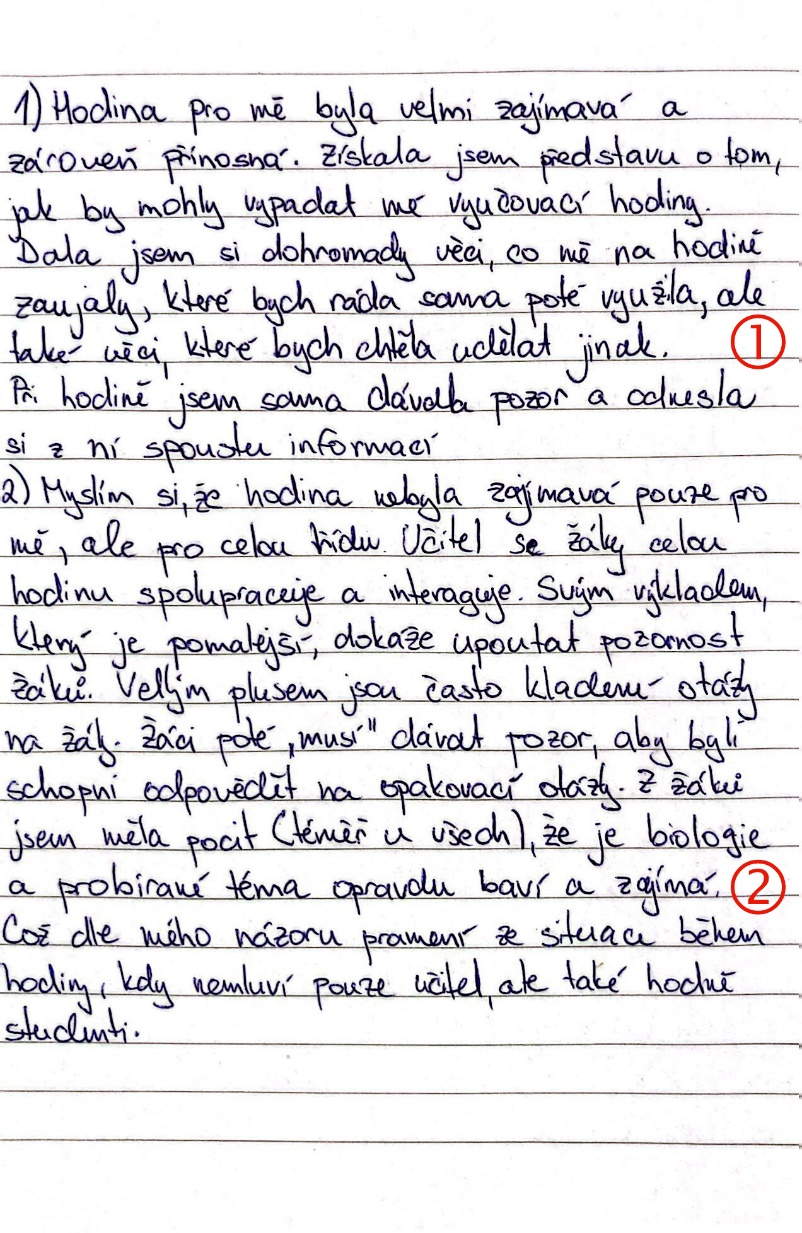 1) Hodina pro mě byla velmi zajímavá a
zároveň přínosná. Získala jsem představu o tom,
jak by mohly vypadat mé vyučovací hodiny.
Dala jsem si dohromady věci, co mě na hodině
zaujaly, které bych ráda sama poté využila, ale
také věci, které bych chtěla udělat jinak. ①
Při hodině jsem sama dávala pozor a odnesla
si z ní spoustu informací
2) Myslím si, že hodina nebyla zajímavá pouze pro
mě, ale pro celou třídu. Učitel se žáky celou
hodinu spolupracuje a interaguje. Svým výkladem,
který je pomalejší, dokáže upoutat pozornost
žáků. Velkým plusem jsou často kladené otázky
na žáky. Žáci poté „musí" dávat pozor, aby byli
schopní odpovědět na opakovací otázky. Z žáků
jsem měla pocit (téměř u všech), že je biologie
a probírané téma opravdu baví a zajímá. ②
Což dle mého názoru pramení ze situace během
hodiny, kdy nemluví pouze učitel, ale také hodně
studenti.